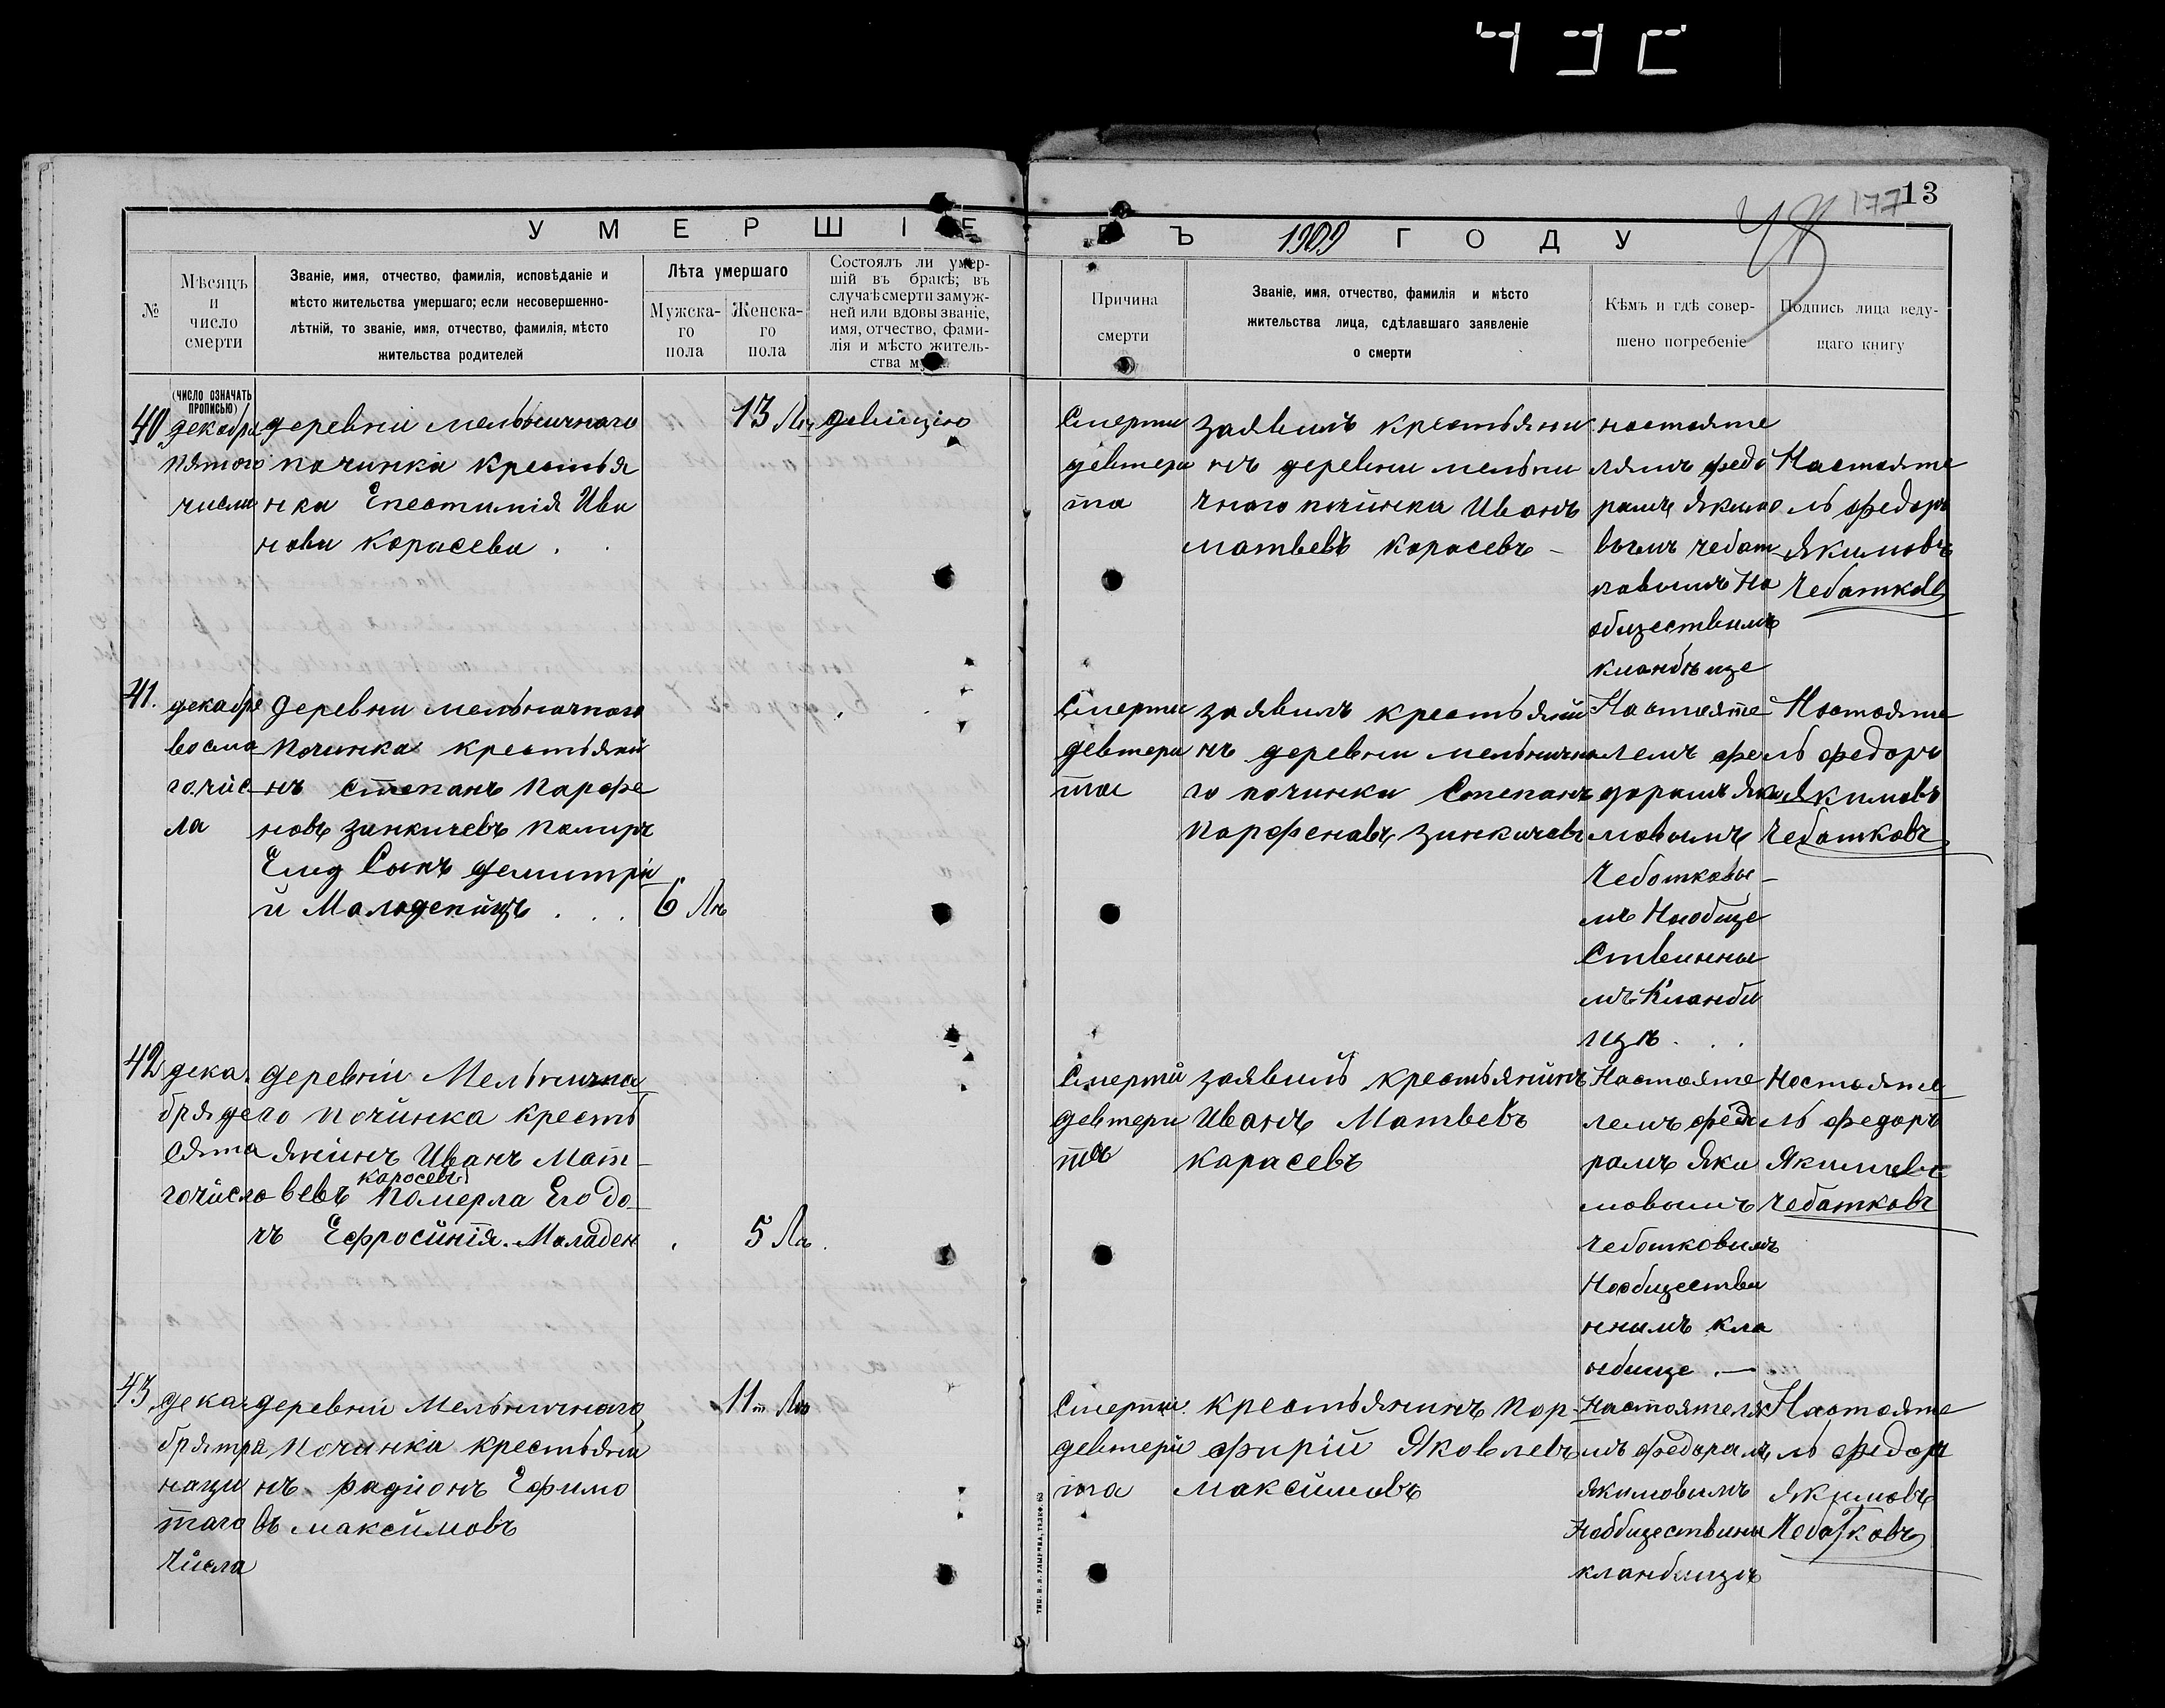 13
177
УМЕРШІЕ
ВЪ 1909 ГОДУ
№
Мѣсяцъ
и
число
смерти
Званіе, имя, отчество, фамилія, исповѣданіе и
мѣсто жительства умершаго; если несовершенно-
лѣтній, то званіе, имя, отчество, фамилія, мѣсто
жительства родителей
Лѣта умершаго
Мужска-
го
пола
Женска-
го
пола
Состоялъ ли умер-
шій въ бракѣ; въ
случаѣ смерти замуж-
ней или вдовы званіе,
имя, отчество, фами-
лія и мѣсто житель-
ства мужа.
Причина
смерти
Званіе, имя, отчество, фамилія и мѣсто
жительства лица, сдѣлавшаго заявленіе
о смерти
Кѣмъ и гдѣ совер-
шено погребеніе
Подпись лица веду-
щаго книгу
(ЧИСЛО ОЗНАЧАТЬ
ПРОПИСЬЮ)
40
декабря
пятого
числа
деревни мельничнаго
починка крестья
нка Епестимія Ива
нова Карасева
13 Лѣ
девицію
Смерти
девтери
та
заявилъ крестьяни
нъ деревни мельни
чнаго починка Иванъ
матвевъ Карасевъ
настояте
лямъ федо
рамъ Якимо
вымъ чебот
ковымъ На
обществимъ
кланбъище
Настояте
ль федоръ
Якимовъ
Чебатковъ
41.
декабре
восма
го чис
ла
деревни мельничнаго
Починка крестьяни
нъ степанъ Парфе
новъ Зинкичевъ Памиръ
Емд Сынъ демитрі
й Маладенйцъ
6 Лѣ
Смерти
девтери
та
заявилъ крестьяни
нъ деревни мельнична
го починка Степанъ
Парфенавъ Зинкичевъ
Настояте
лемъ фе
дорамъ Яки
мовымъ
Чеботковы
мъ Наобще
Ствинны
мъ Кланби
щъ
Настояте
ль федоръ
Якимовъ
Чебатковъ
42
дека
бря де
сята
гочисло
деревни Мельнична
го Починка кресть
янинъ Иванъ Мат
Каросевъ
вевъ Памерла Его до
чъ Ефросинія. Маладен
5 Лѣ
Смертй
девтери
та
заявилъ крестьянинъ
Иванъ Матвевъ
Карасевъ
Настояте
лемъ федо
рамъ Яки
мовымъ
Чеботковымъ
Наобществи
ннымъ кла
нбище
Настояте
ль федоръ
Якимовъ
Чебатковъ
43
дека
брятри
наци
таго
числа
деревни Мельничнаго
Починка крестьяни
нъ радіонъ Ефимо
въ максимовъ
11 Лѣ
Смерти
девтери
та
крестьянинъ Пор
фирій Яковлевъ
максимовъ
Настоятеля
мъ федорамъ
Якимовымъ
Наобществины
кланбищъ
Настояте
ль федоръ
Якимовъ
Чебатковъ